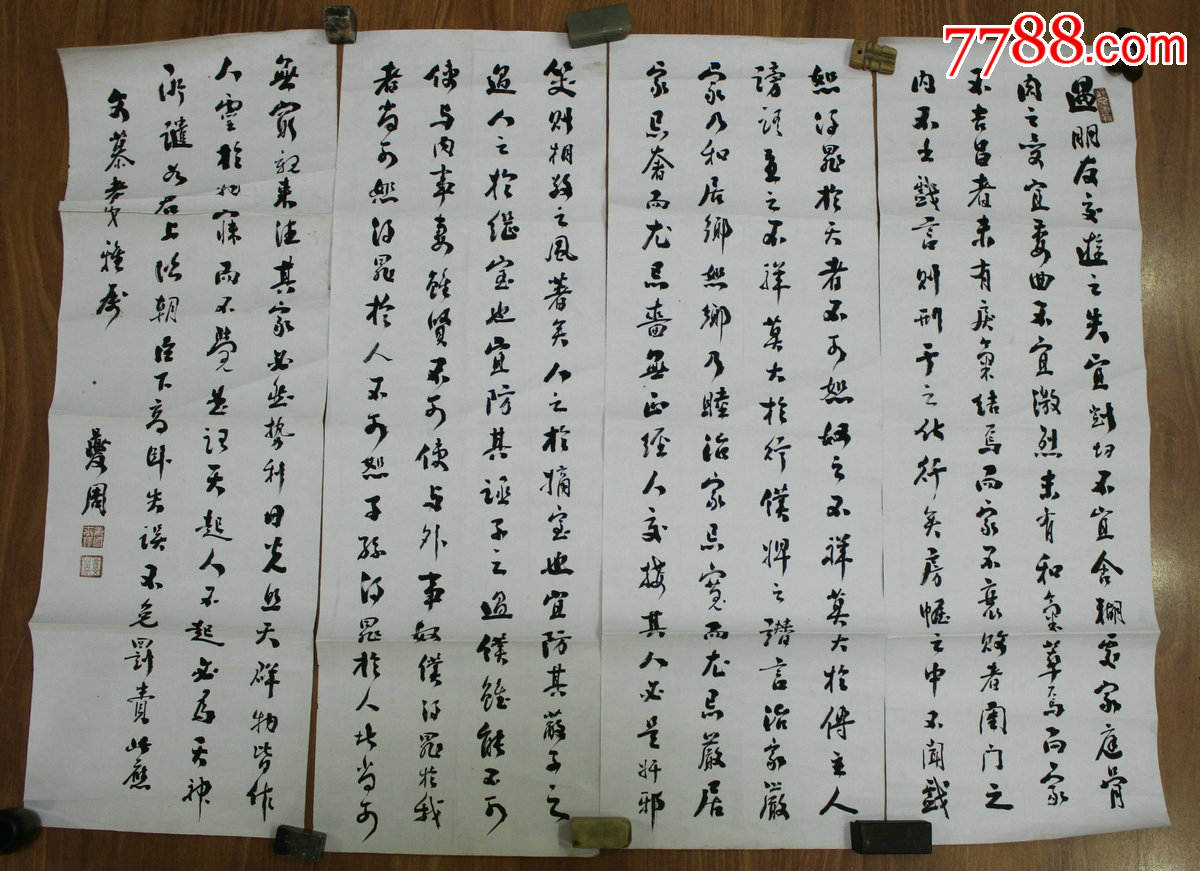 7788.com
遇朋友交遊之失宜剴切不宜含糊處家庭骨
肉之變宜委曲不宜激烈未有和氣萃焉而家
不吉昌者未有戾氣結焉而家不衰敗者閨門之
内不出戲言則刑于之化行矣房幄之中不聞戲
恕得罪於天者不可恕奴之不祥莫大於傳主人
謗語主之不祥莫大於行僕婢之譖言治家嚴
家乃和居鄉恕鄉乃睦治家忌寬而尤忌嚴居
家忌奢而尤忌嗇無正經人交接其人必是奸邪
笑則相敬之風著矣人之於嫡室也宜防其蔽子之
過人之於繼室也宜防其誣子之過僕雖能不可
使与内事妻雖賢不可使与外事奴僕得罪於我
者尚可恕得罪於人不可恕子孫得罪於人者尚可
無窮親來往其家必然勢利日光照天群物皆作
人靈於物寐而不覺是謂天起人不起必為天神
所譴如君上臨朝臣下高卧失誤不免罰責此應
文慕老兄雅属
夔周